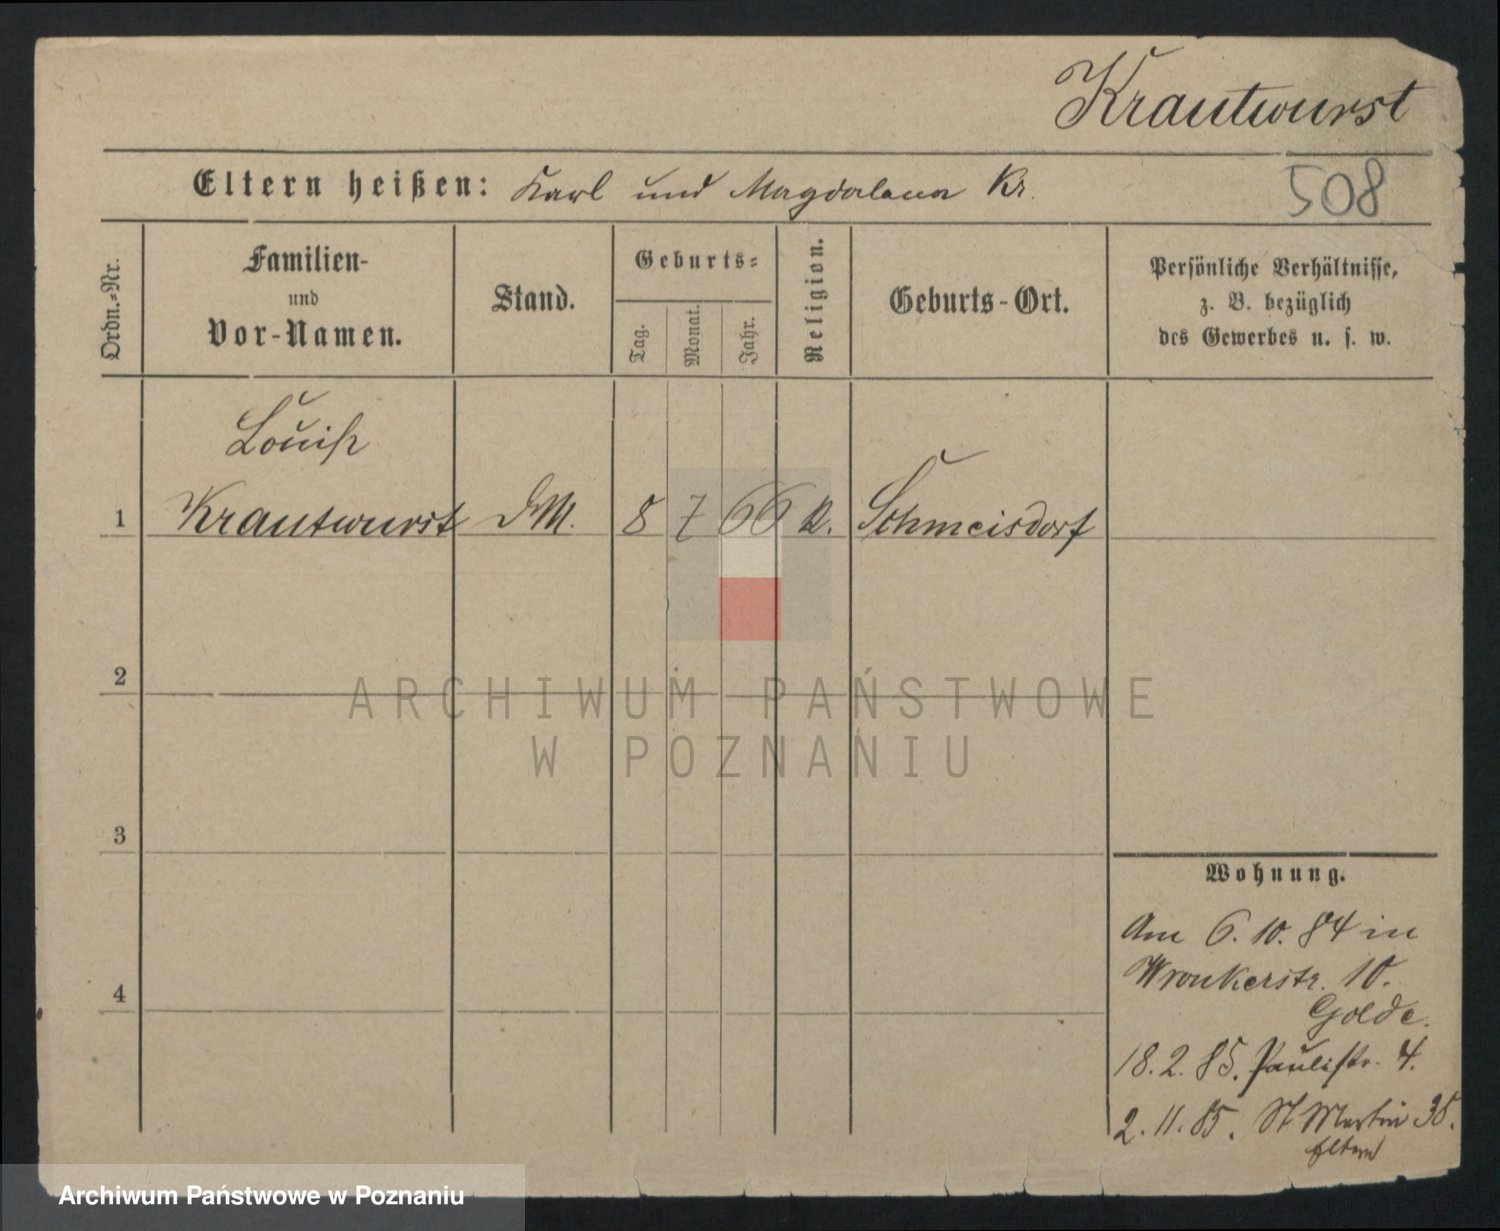 Krautwurst
Eltern heißen: Karl und Magdalena Kr.
508
Ordn.-Nr.
Familien-
und
Vor-Namen.
Stand.
Geburts-
Tag.
Monat.
Jahr.
Religion.
Geburts-Ort.
Persönliche Verhältnisse,
z. B. bezüglich
des Gewerbes u. s. w.
Louise
1 Krautwurst DM. 8 7 66 K. Schmeisdorf
2
3
4
ARCHIWUM PAŃSTWOWE
W POZNANIU
Wohnung.
Am 6. 10. 84 in
Wronkerstr. 10.
Golde.
18. 2. 85. Paulistr. 4.
2. 11. 85. St Martin
Eltern
Archiwum Państwowe w Poznaniu